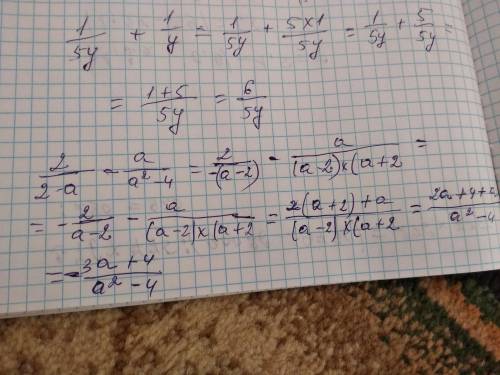 1/5y + 1/y = 1/5y + 5×1/5y = 1/5y + 5/5y =
= 1+5/5y = 6/5y
2/2-a - a/a²-4 = 2/-(a-2) - a/(a-2)×(a+2 =
= -2/a-2 - a/(a-2)×(a+2 = 2(a+2)+a/(a-2)×(a+2 = 2a+4+/a²-4
= -3a+4/a²-4